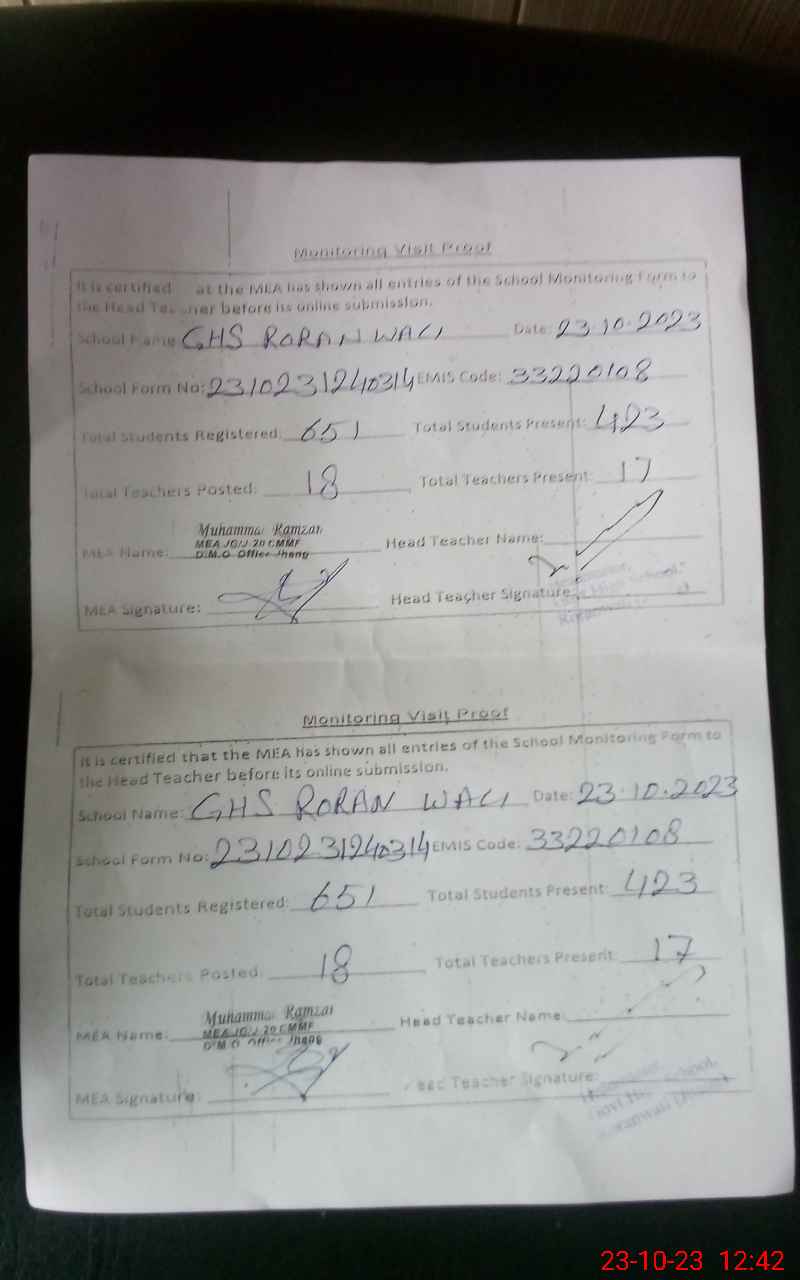 Monitoring Visit Proof
It is certified at the MEA has shown all entries of the School Monitoring Form to
the Head Teacher before its online submission.
School Name GHS RORAN WALI Date: 23-10-2023
School Form No: 2310231240314 EMIS Code: 33220108
Total Students Registered: 651 Total Students Present: 423
Total Teachers Posted: 18 Total Teachers Present: 17
Muhammad Ramzan
MEA JG/J-20 CMMF
MEA Name: D.M.O. Office Jhang Head Teacher Name:
MEA Signature: Head Teacher Signature:
Monitoring Visit Proof
It is certified that the MEA has shown all entries of the School Monitoring Form to
the Head Teacher before its online submission.
School Name: GHS RORAN WALI Date: 23-10-2023
School Form No: 2310231240314 EMIS Code: 33220108
Total Students Registered: 651 Total Students Present: 423
Total Teachers Posted: 18 Total Teachers Present: 17
Muhammad Ramzan
MEA JG/J-20 CMMF
MEA Name: D.M.O. Office Jhang Head Teacher Name:
MEA Signature: Head Teacher Signature:
23-10-23 12:42